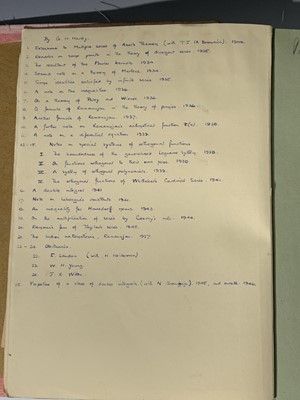 By G. H. Hardy.
1. Extensions to Multiple series of Abel's Theorem (with T. J. I'A Bromwich). 1904.
2. Remarks on some points in the theory of divergent series. 1935.
3. The resultant of two Fourier kernels. 1935.
4. Second note on a theorem of Mercer. 1936.
5. Some identities satisfied by infinite series. 1935.
6. A note on the 1936.
7. On a theorem of Paley and Wiener. 1936.
8. A formula of Ramanujan in the theory of primes. 1936.
9. Another formula of Ramanujan. 1937.
10. A further note on Ramanujan's arithmetical function τ(n). 1938.
11. A note on a differential equation. 1938.
12-15 Notes on special systems of orthogonal functions
I. The boundedness of the generalised Laguerre system. 1938.
II. On functions orthogonal to their own zeros. 1938.
III. A system of orthogonal polynomials. 1938.
IV. The orthogonal functions of Whittaker's Cardinal Series. 1941.
16. A double integral 1941.
17. Note on Lebesgue's constants. 1942.
18. An inequality for Hausdorff means. 1942.
19. On the multiplication of series by Cauchy's rule. 1942.
20. Riemann's form of Taylor's series. 1945.
21. The Indian mathematician, Ramanujan. 1937.
22-24 Obituaries.
22. E. Landau (with H. Heilbronn)
23. W. H. Young
24. J. R. Wilton
25. Properties of a class of double integrals (with N. Aronszajn). 1945, and errata 1946.